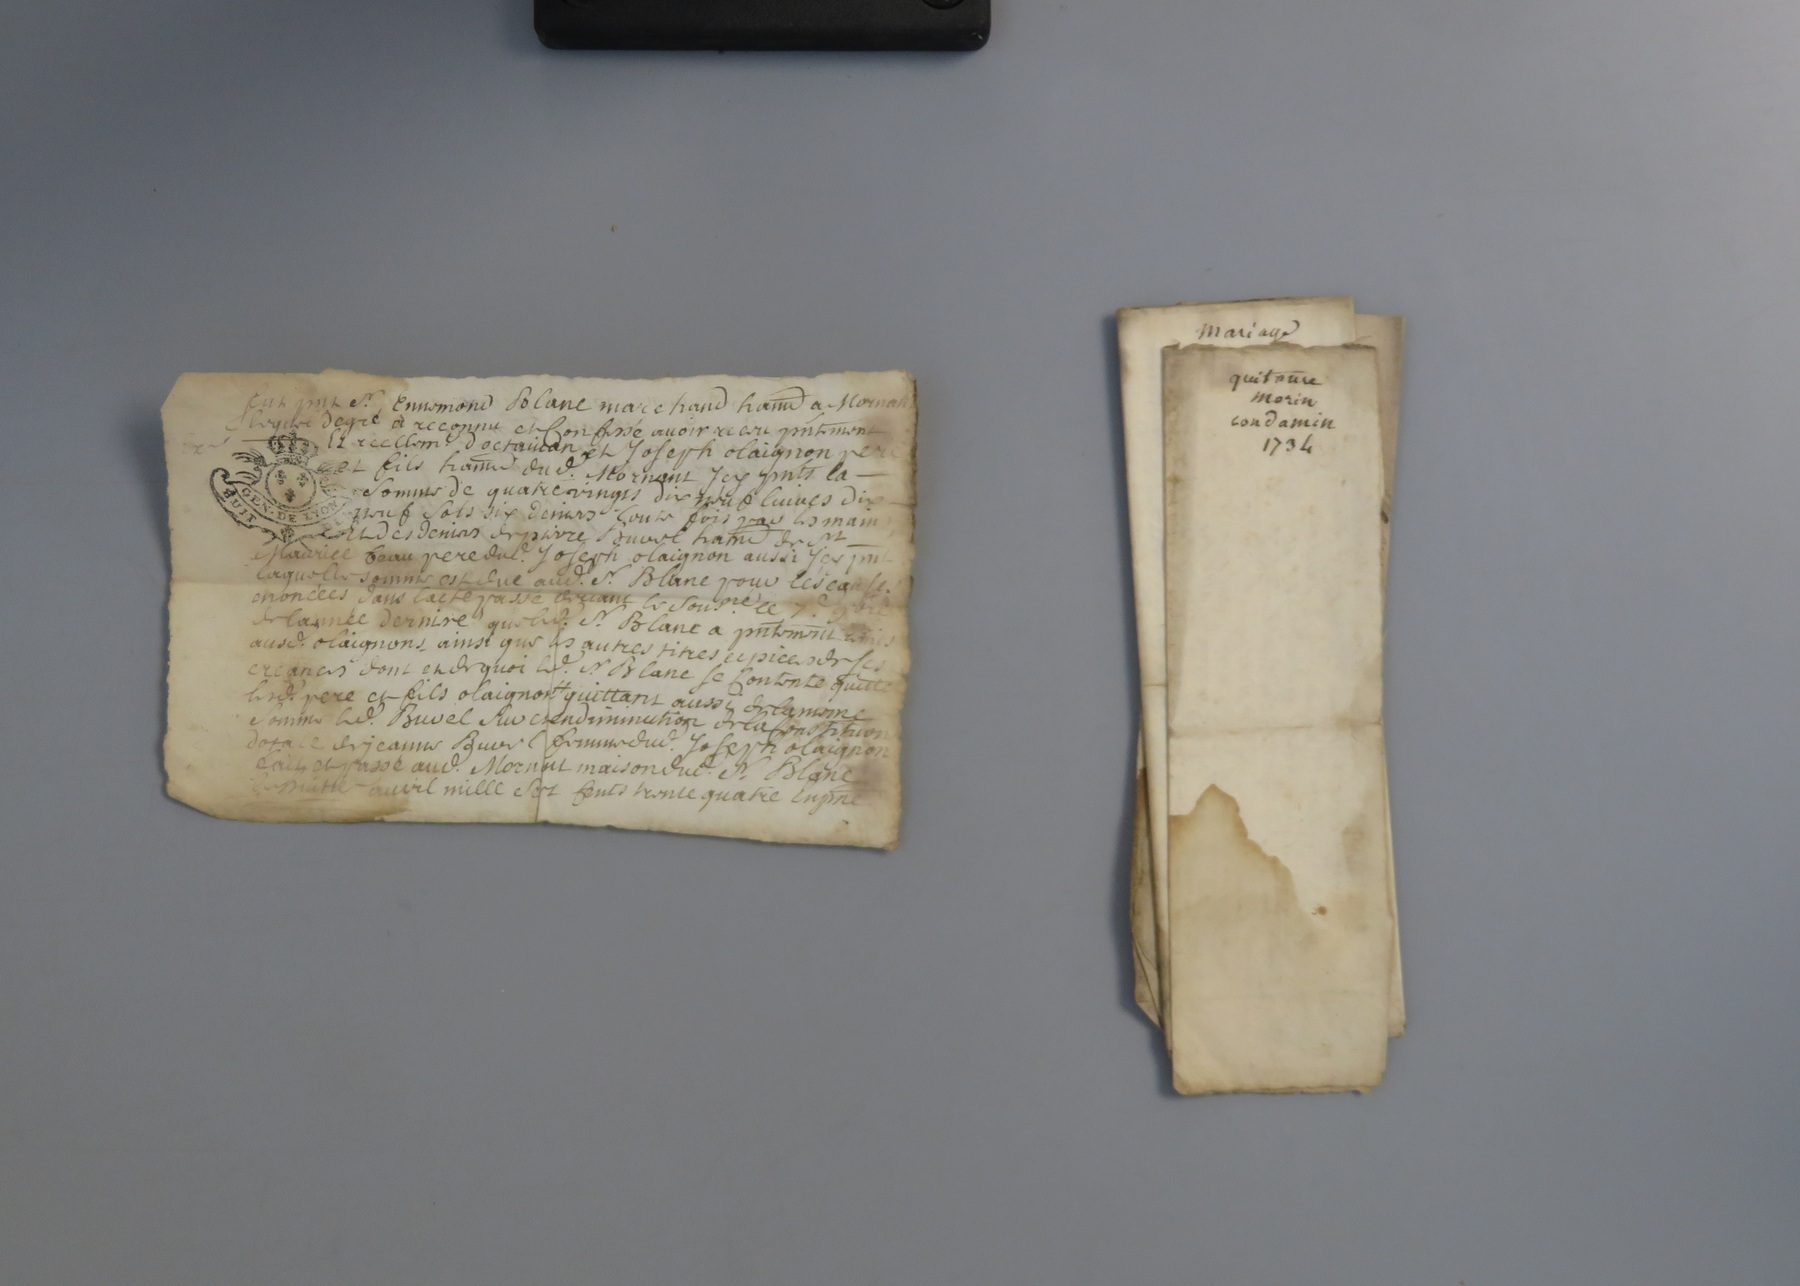 fut pnt Sr. Ennemond Blanc marchand hañt a Mornant
lequel degré a reconnu et Confessé avoir receu pntement
Et reellemt. d'octavian et Joseph olaignon pere
et fils hañt dud. Mornant Icy pnts la
Somme de quatrevingts dix neuf livres dix
neuf sols six deniers toute fois par les mains
et des deniers de pierre Buvel hañt de St
Maurice beau pere dud. Joseph olaignon aussi Icy pnt
laquelle somme est due aud. Sr. Blanc pour les causes
enoncées dans lacte passé devant le Sousné. le 7e
de lannée derniere que led. Sr. Blanc a pntement remis
ausd. olaignons ainsi que les autres titres et pieces de ses
creances dont et de quoi led. Sr Blanc se Contente quitte
lesd. pere et fils olaignons quittant aussi de la meme
Somme led. Buvel en diminution de la Constitution
dotale de jeanne Buvel femme dud. Joseph olaignon
fait et passé aud. Mornant maison dud. Sr. Blanc
avril mille sept Cents trente quatre En pnce
GEN. DE LYON
HUIT
Mariage
quittance
morin
condamin
1734